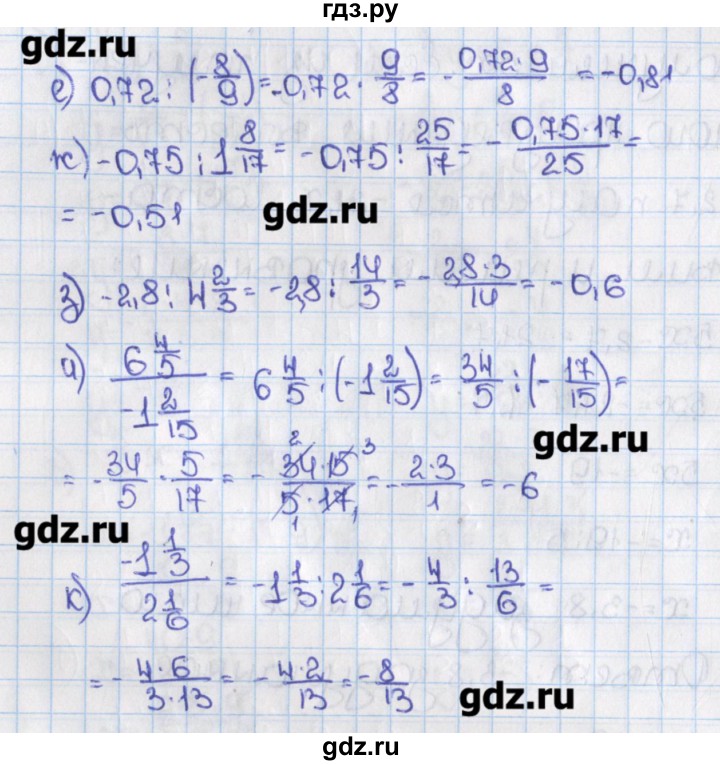 гдз.ру
gdz.ru
е) 0,72 : (-8/9) = -0,72 · 9/8 = - 0,72·9/8 = -0,81
ж) -0,75 : 1 8/17 = -0,75 : 25/17 = - 0,75·17/25 =
= -0,51
gdz.ru
з) -2,8 : 4 2/3 = -2,8 : 14/3 = - 2,8·3/14 = -0,6
и) 6 4/5 / -1 2/15 = 6 4/5 : (-1 2/15) = 34/5 : (-17/15) =
gdz.ru
= - 34/5 · 5/17 = - 34·15/5·17 = - 2·3/1 = -6
2 3
1 1
gdz.ru
к) -1 1/3 / 2 1/6 = -1 1/3 : 2 1/6 = - 4/3 : 13/6 =
= - 4·6/3·13 = - 4·2/13 = - 8/13
gdz.ru
gdz.ru